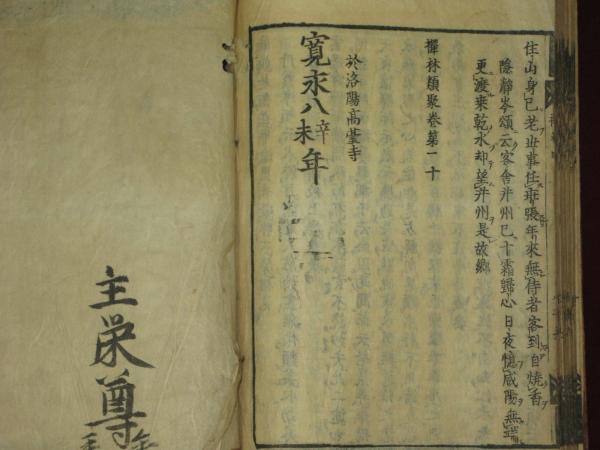 住山身已老世事任乖張年來無侍者客到自燒香
隱靜岑頌云客舍并州已十霜歸心日夜憶咸陽無端
更渡桑乾水却望并州是故鄉
禪林類聚卷第二十
於洛陽高臺寺
寬永八辛未年
主栄尊